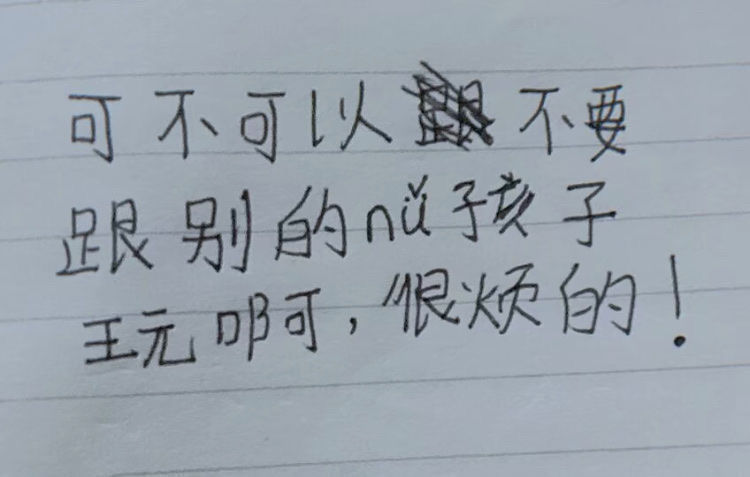 可不可以不要
跟别的nǚ孩子
王元啊,恨烦的!